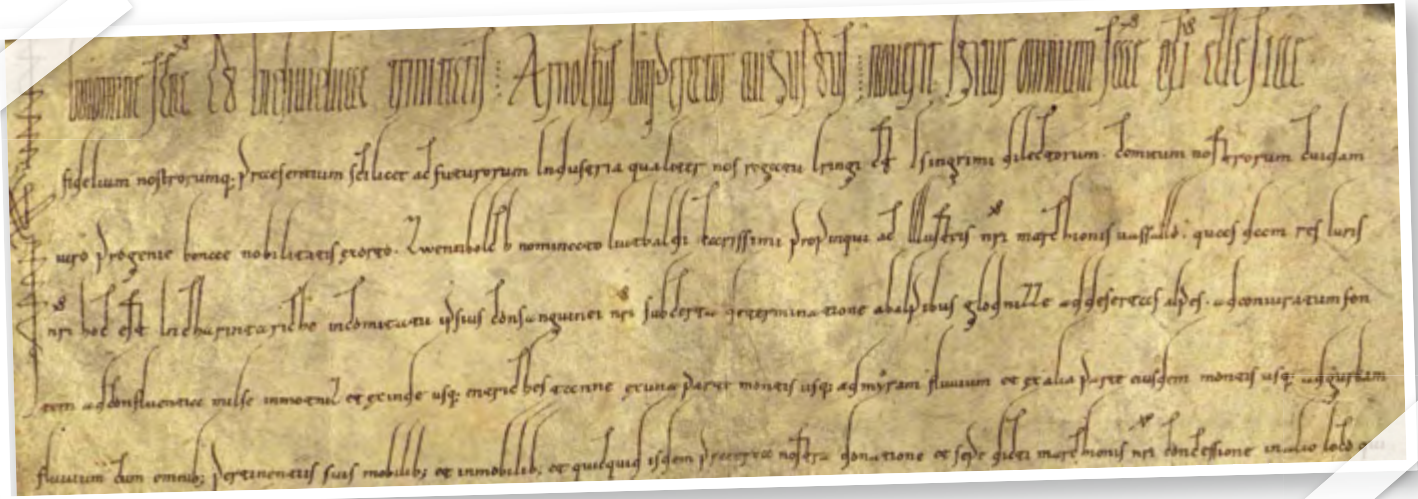 In nomine scae & indiuiduae trinitatis : Arnolfus imperator augustus : nouerit igitur omnium scae ecclesiae
fidelium nostrorumq; praesentium scilicet ac futurorum industria qualiter nos rogatu Iringi & Isingrimi dilectorum comitum nostrorum cuidam
uiro progenie bonae nobilitatis exorto Zwentibolch nominato liutbaldi carissimi propinqui ac illustris nri marchionis uassallo quasdam res iuris
nri hoc est in charintariche in comitatu ipsius consanguinei nri sub certa determinatione ab alpibus glodnizze ad desertas alpes
ad confluentiam et exinde usq; ex una parte montis usq; ad fluuium et ex alia parte eiusdem montis usq; ad gurcam
fluuium cum omnib; pertinentiis suis mobilib; et inmobilib; et quicquid isdem praeterea nostra donatione et sepe dicti marchionis nri concessione in alio loco qui